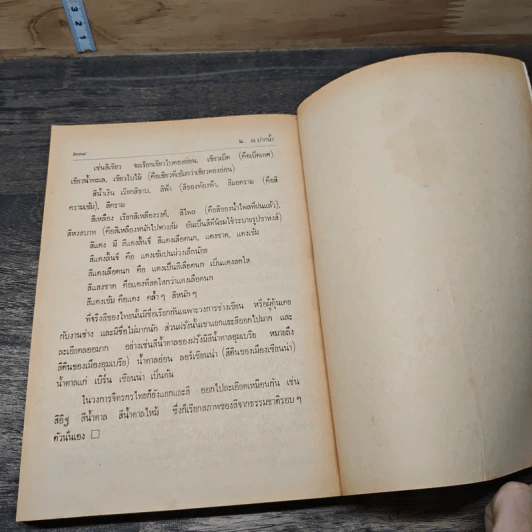 น. ณ ปากน้ำ
เช่นสีเขียว จะเรียกเขียวใบตองอ่อน, เขียวเป็ด (คือเป็ดเทศ)
เขียวน้ำทะเล, เขียวใบไม้ (คือเขียวที่เข้มกว่าเขียวตองอ่อน)
สีน้ำเงิน เรียกสีขาบ, สีฟ้า (สีของท้องฟ้า), สีมอคราม (คือสี
ครามเข้ม), สีคราม
สีเหลือง เรียกสีเหลืองรงค์, สีไพล (คือสีของน้ำไพลที่ฝนแล้ว),
สีหงสบาท (คือสีเหลืองหนักไปทางส้ม อันเป็นสีที่นิยมใช้ระบายรูปขาหงส์)
สีแดง มี สีแดงลิ้นจี่ สีแดงเลือดนก, แดงชาด, แดงเข้ม
สีแดงลิ้นจี่ คือ แดงเข้มปนม่วงเล็กน้อย
สีแดงเลือดนก คือ แดงเป็นสีเลือดนก เป็นแดงสดใส
สีแดงชาด คือแดงที่สดใสกว่าแดงเลือดนก
สีแดงเข้ม คือแดง คล้ำๆ สีหนักๆ
ที่จริงสีของไทยนั้นมีชื่อเรียกกันเฉพาะวงการช่างเขียน หรือผู้คุ้นเคย
กับงานช่าง และมีชื่อไม่มากนัก ส่วนฝรั่งนั้นเขาแยกแยะสีออกไปมาก และ
ละเอียดลออมาก อย่างเช่นสีน้ำตาลของฝรั่งมีสีน้ำตาลอุมเบรีย หมายถึง
สีดินของเมืองอุมเบรีย) น้ำตาลอ่อน ลอร์เซียนน่า (สีดินของเมืองเซียนน่า)
น้ำตาลแก่ เบิร์น เซียนน่า เป็นต้น
ในวงการจิตรกรไทยก็ยังแยกแยะสี ออกไปละเอียดเหมือนกัน เช่น
สีอิฐ สีน้ำตาล สีน้ำตาลไหม้ ซึ่งก็เรียกสภาพของสีจากธรรมชาติรอบๆ
ตัวนั่นเอง □
3 2 1